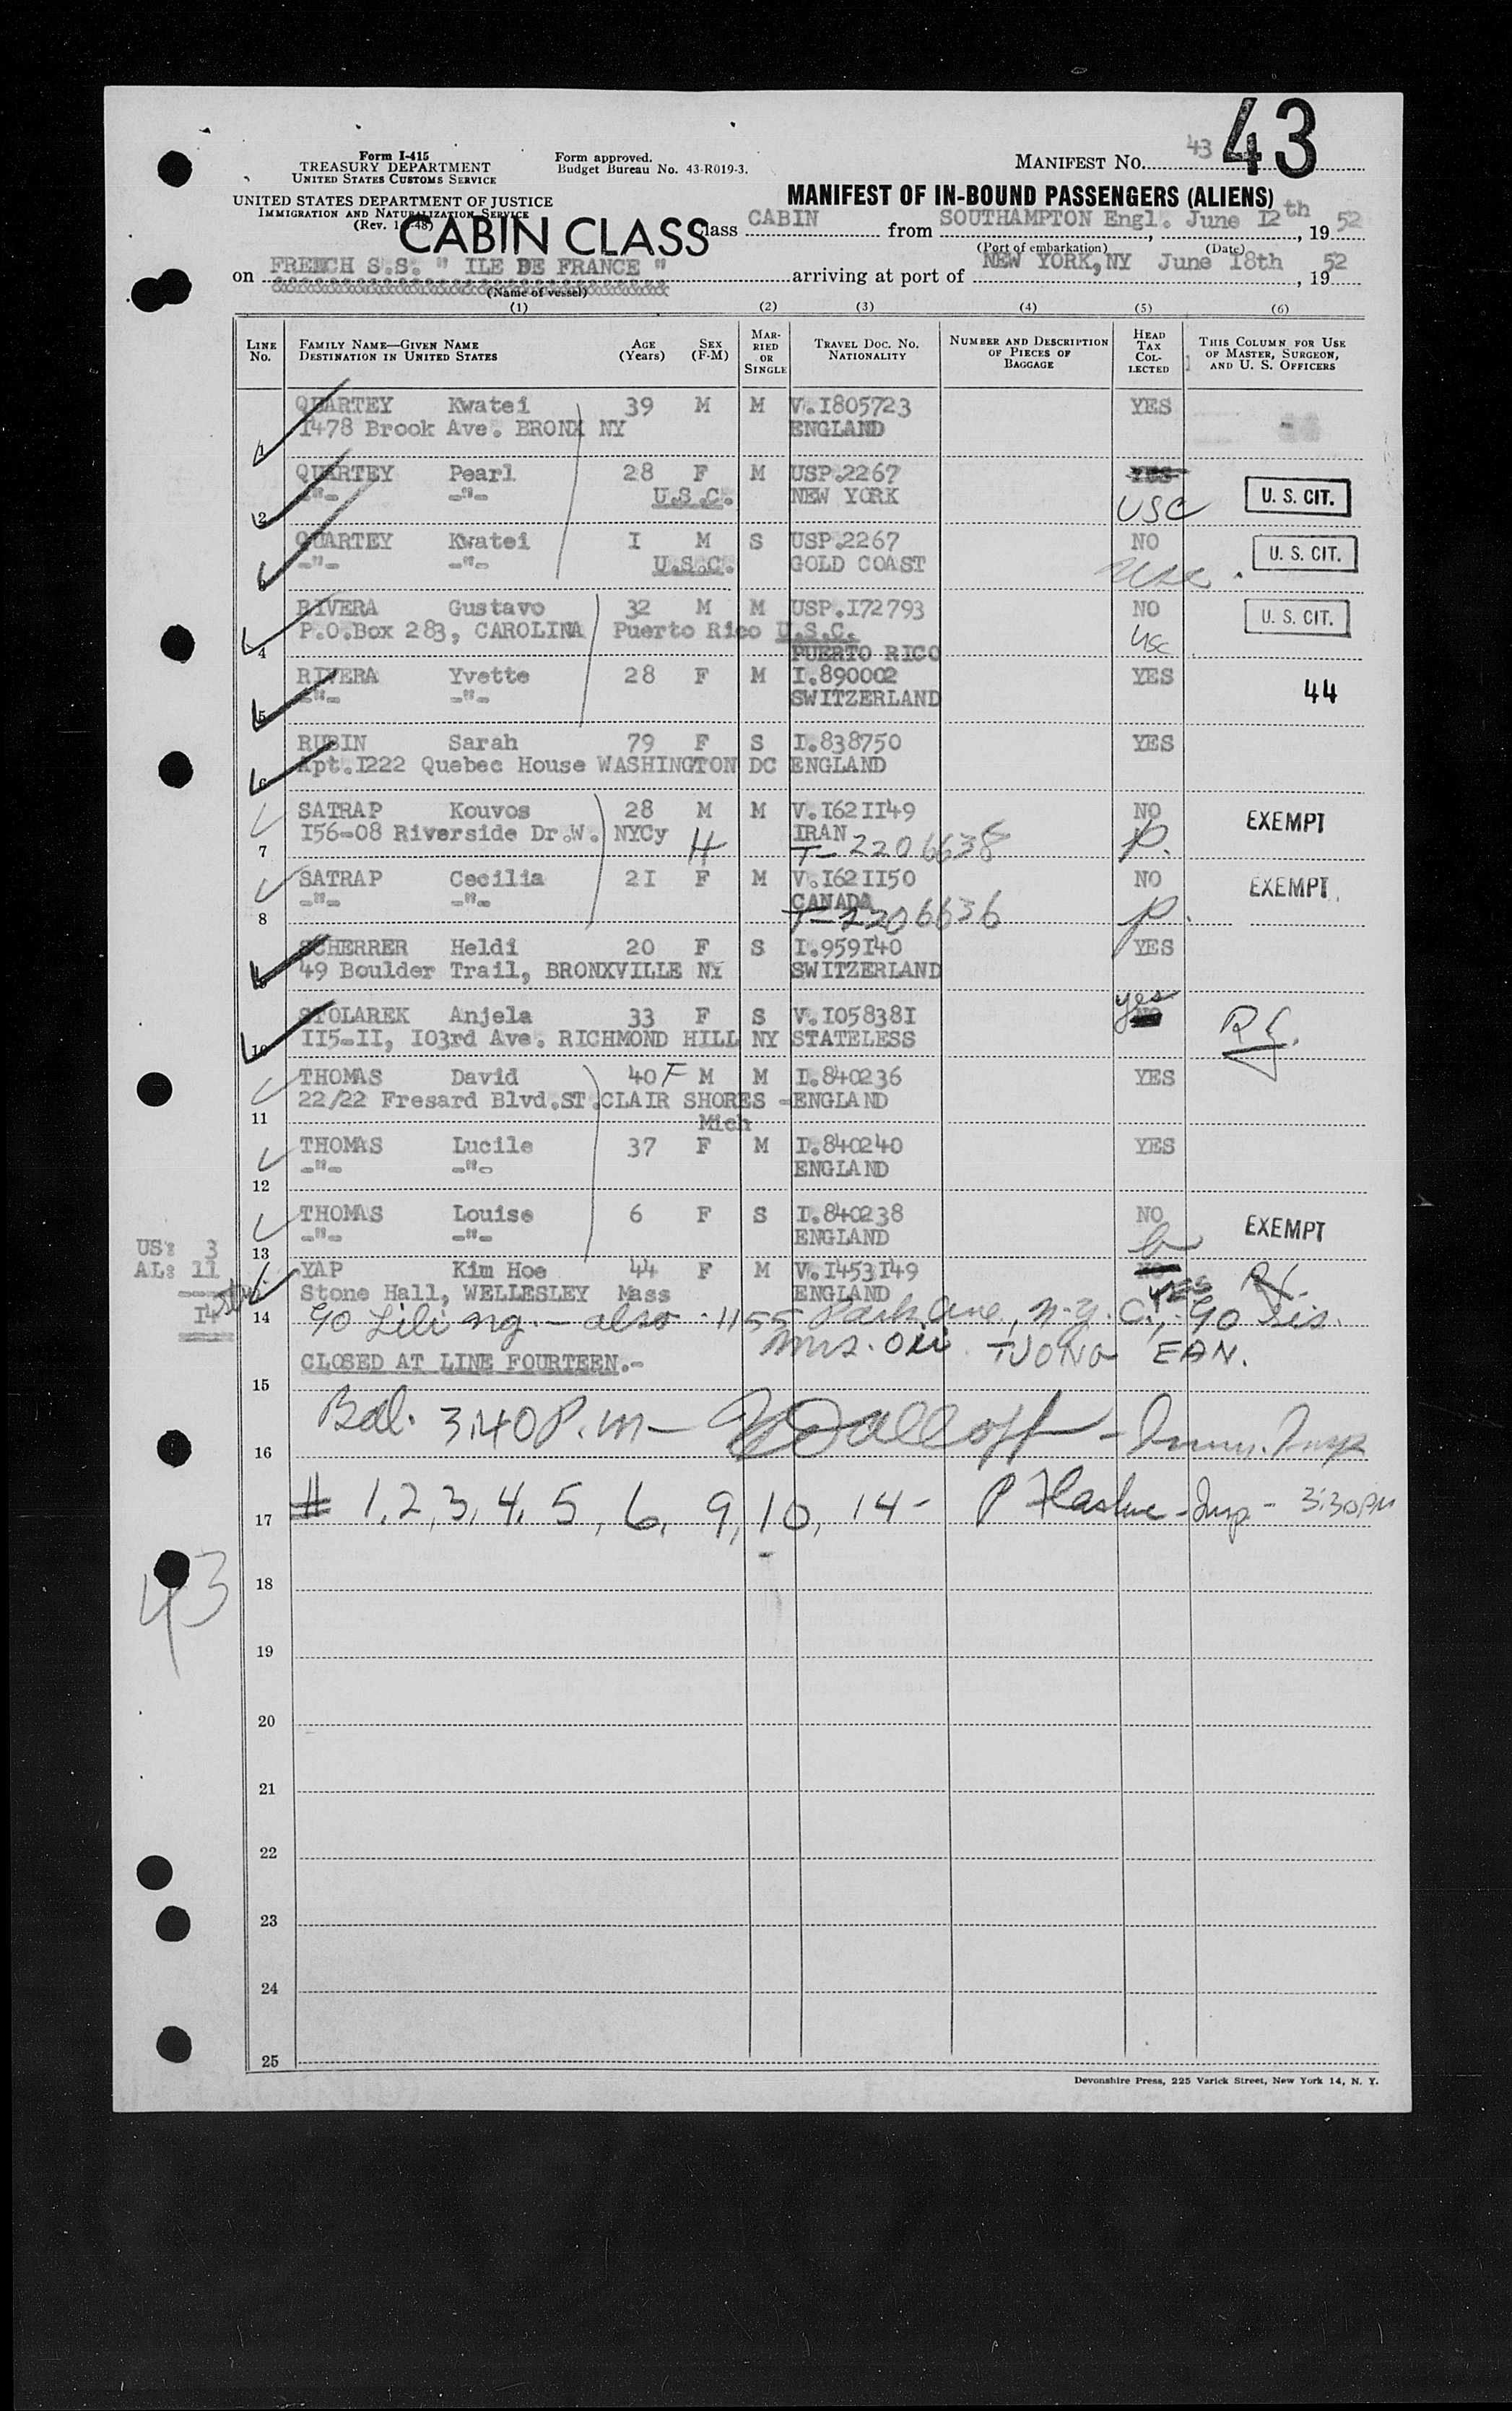 43
43
Form I-415
TREASURY DEPARTMENT
UNITED STATES CUSTOMS SERVICE
Form approved.
Budget Bureau No. 43-R019-3.
MANIFEST NO.
UNITED STATES DEPARTMENT OF JUSTICE
IMMIGRATION AND NATURALIZATION SERVICE
MANIFEST OF IN-BOUND PASSENGERS (ALIENS)
CABIN CLASS
Class CABIN from SOUTHAMPTON Engl. June I2th, 1952
(Port of embarkation) (Date)
on FRENCH S.S. " ILE DE FRANCE " arriving at port of NEW YORK,NY June I8th, 1952
(Name of vessel)
(1) (2) (3) (4) (5) (6)
LINE No. FAMILY NAME—GIVEN NAME DESTINATION IN UNITED STATES AGE (Years) SEX (F-M) MARRIED OR SINGLE TRAVEL DOC. NO. NATIONALITY NUMBER AND DESCRIPTION OF PIECES OF BAGGAGE HEAD TAX COLLECTED THIS COLUMN FOR USE OF MASTER, SURGEON, AND U. S. OFFICERS
QUARTEY Kwatei 39 M M V.I805723 YES
1 I478 Brook Ave. BRONX NY ENGLAND
QUARTEY Pearl 28 F M USP.2267 YES
2 -"- -"- U.S.C. NEW YORK USC U. S. CIT.
QUARTEY Kwatei I M S USP.2267 NO
-"- -"- U.S.C. GOLD COAST usc U. S. CIT.
RIVERA Gustavo 32 M M USP.I72793 NO U. S. CIT.
4 P.O.Box 283, CAROLINA Puerto Rico U.S.C. usc
PUERTO RICO
RIVERA Yvette 28 F M I.890002 YES
5 -"- -"- SWITZERLAND 44
RUBIN Sarah 79 F S I.838750 YES
6 Apt.I222 Quebec House WASHINGTON DC ENGLAND
SATRAP Kouvos 28 M M V.I62II49 NO EXEMPT
I56-08 Riverside Dr.W. NYCy H IRAN p.
7 T-2206638
SATRAP Cecilia 2I F M V.I62II50 NO EXEMPT
-"- -"- CANADA p.
8 T-2206636
SCHERRER Heldi 20 F S I.959I40 YES
9 49 Boulder Trail, BRONXVILLE NY SWITZERLAND
yes
STOLAREK Anjela 33 F S V.I05838I NO
10 II5-II, I03rd Ave. RICHMOND HILL NY STATELESS
THOMAS David 40 F M M I.840236 YES
22/22 Fresard Blvd.ST.CLAIR SHORES - ENGLAND
11 Mich
THOMAS Lucile 37 F M I.840240 YES
-"- -"- ENGLAND
12
THOMAS Louise 6 F S I.840238 NO EXEMPT
-"- -"- ENGLAND
13
US: 3
AL: 11
14
YAP Kim Hoe 44 F M V.I453I49 NO
Stone Hall, WELLESLEY Mass ENGLAND YES
14 Lili ng. - also 1155 Park Ave, N.Y.C., Sis.
Mrs. Oei TJONG EAN.
CLOSED AT LINE FOURTEEN.-
15
16 Bal. 3:40 P.m - Imm. Insp
17 # 1, 2, 3, 4, 5, 6, 9, 10, 14 - Insp - 3:30PM
43
18
19
20
21
22
23
24
25
Devonshire Press, 225 Varick Street, New York 14, N. Y.